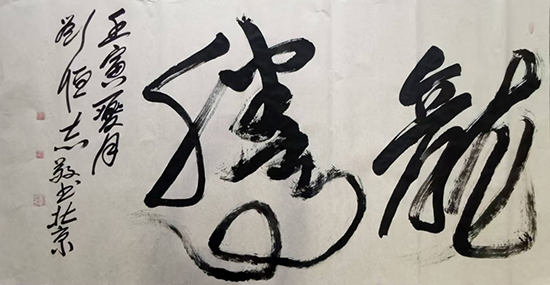 龍騰
壬寅夏月
劉恒志敬书北京